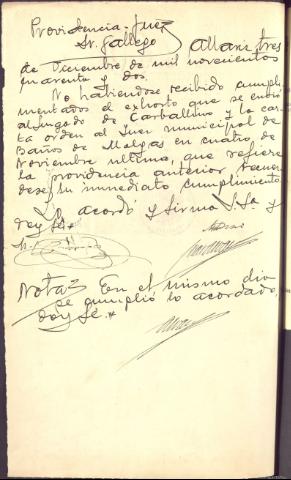 Providencia. Juez
Sr. Gallego Allariz tres
de Diciembre de mil novecientos
cuarenta y dos.
No habiendose recibido cumpli-
mentados el exhorto que se envió
al Juzgado de Carballino y la car-
ta orden al Juez municipal de
Baños de Molgas en cuatro de
Noviembre ultimo, que refiere
la providencia anterior recuer-
dese su inmediato cumplimiento
Lo acordó y firma S.Sª y
doy fe.
Nota= En el mismo dia
se cumplió lo acordado,
doy fe.